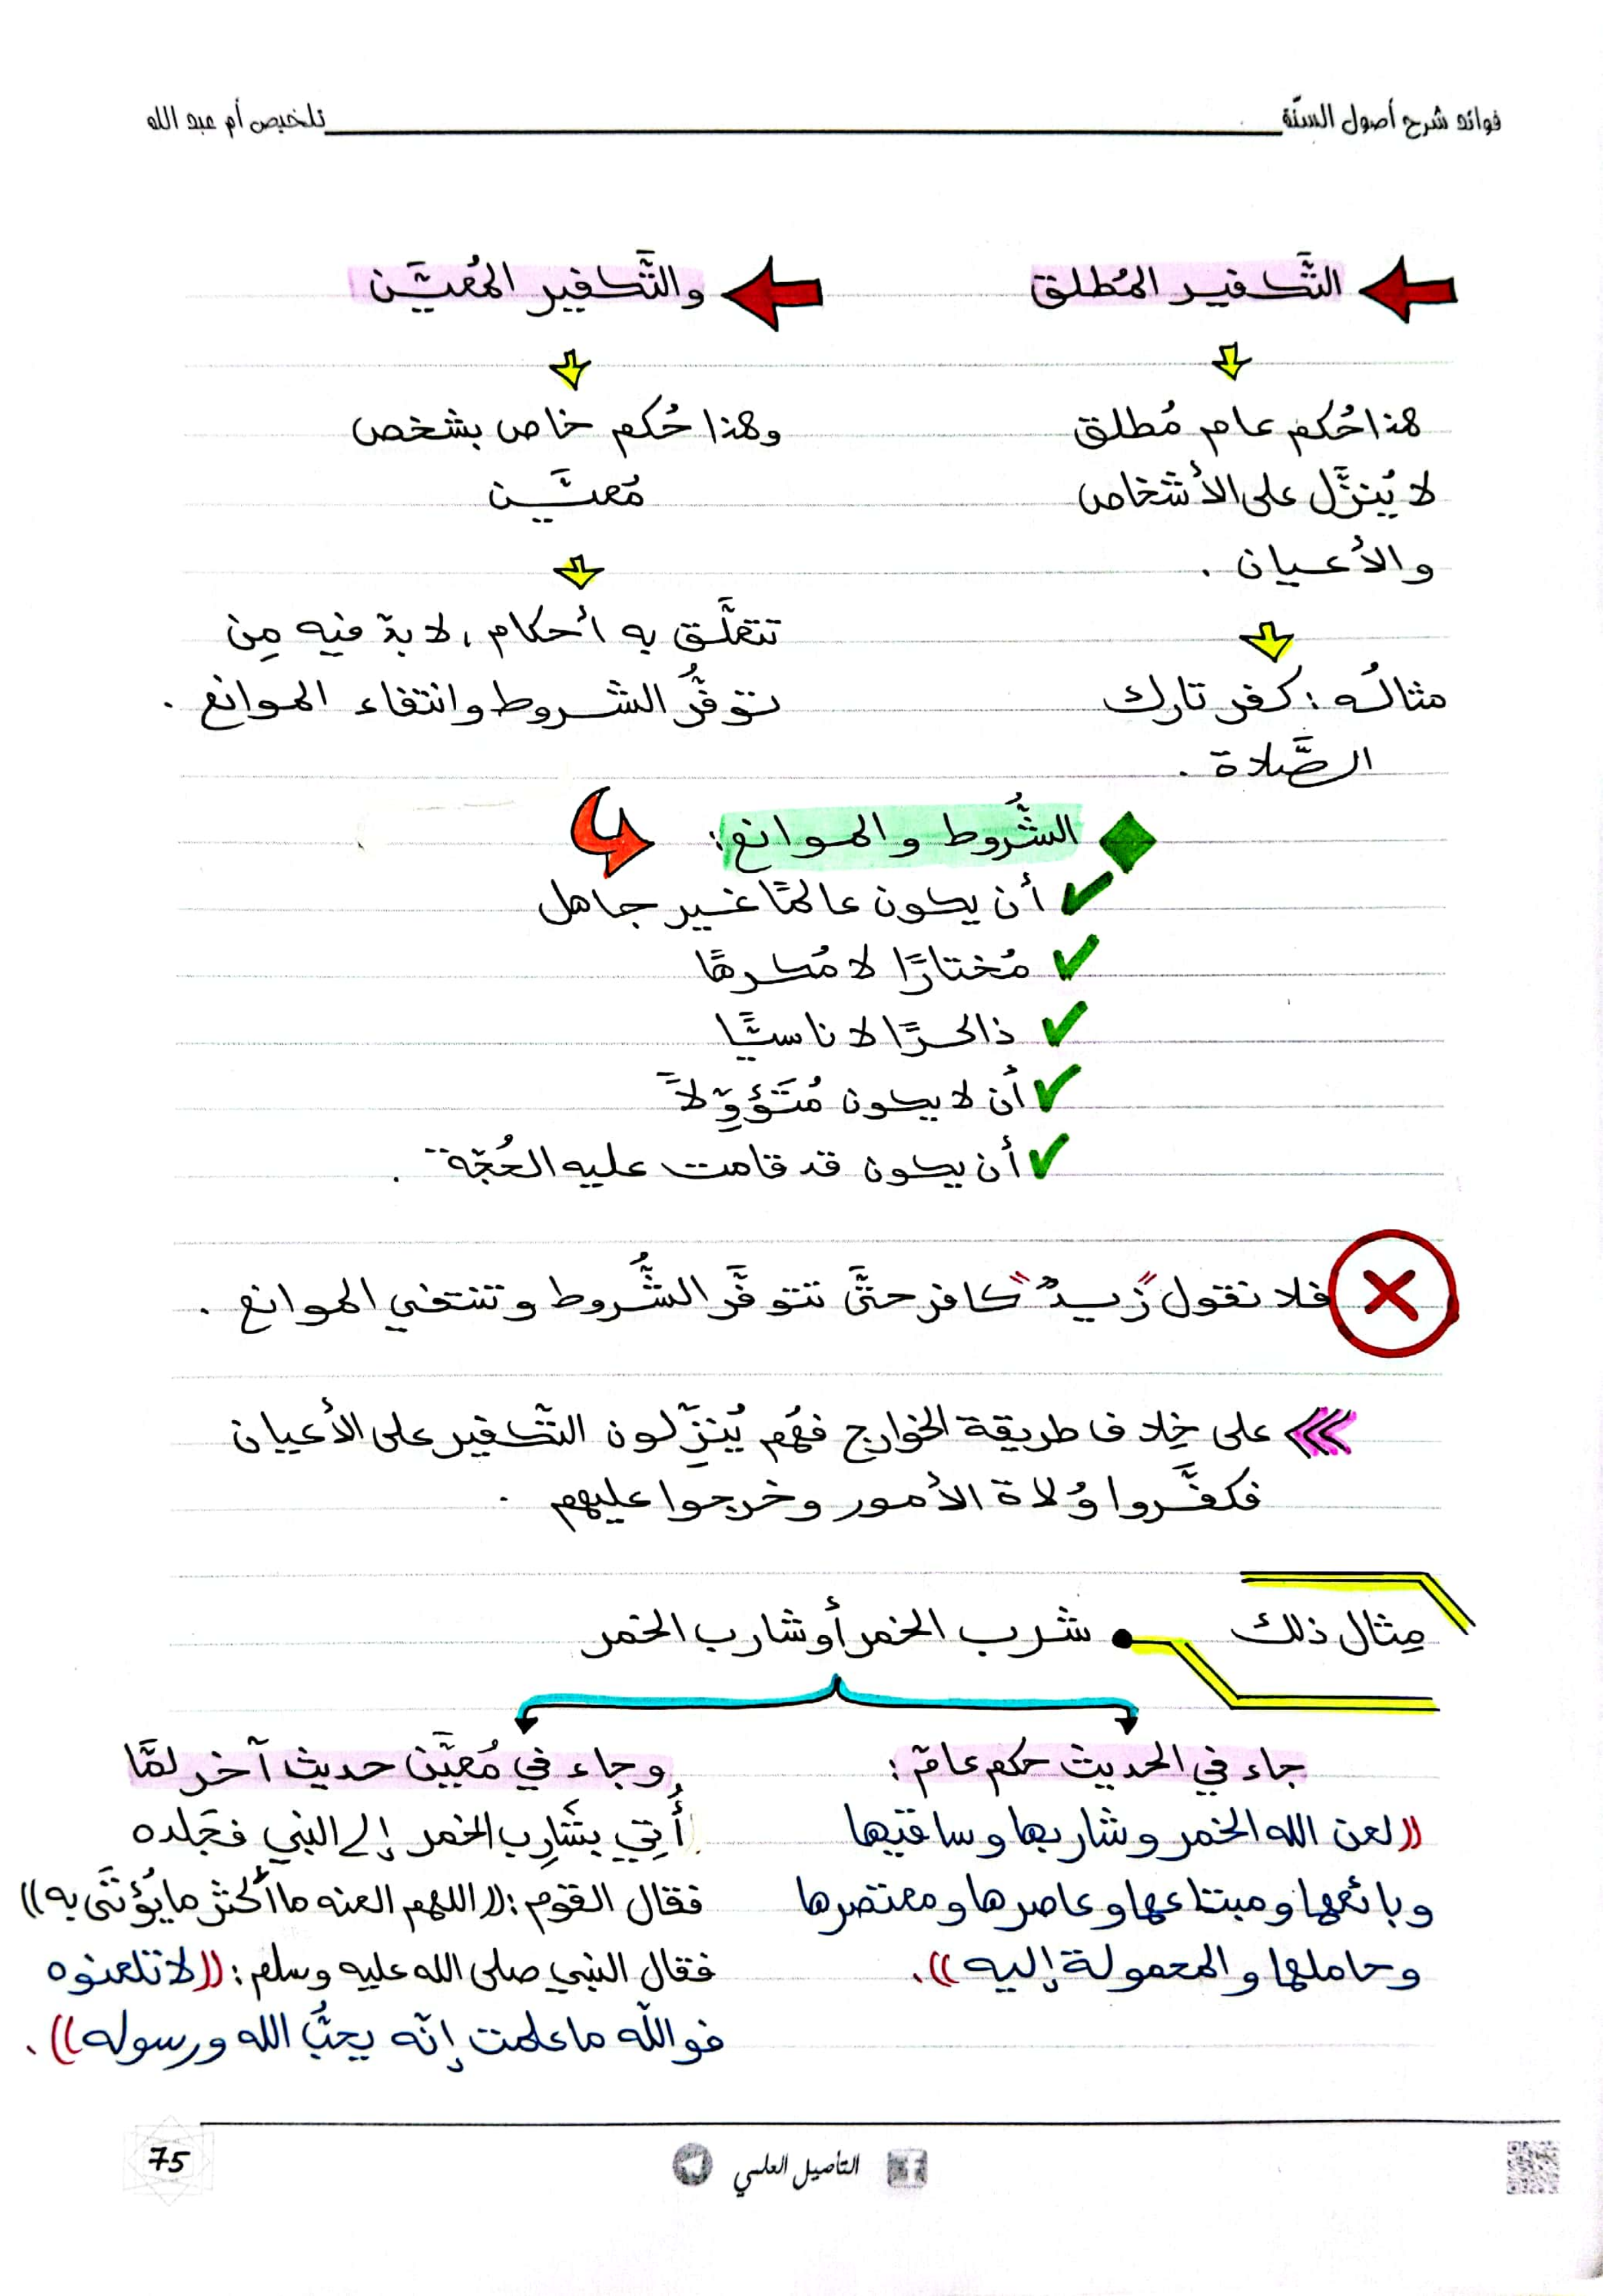 فوائد شرح أصول السنّة تلخيص أم عبد الله
التَّكفير المُطلق
هذا حُكم عام مُطلق
لا يُنزَّل على الأشخاص
والأعيان .
مثالُه : كفر تارك
الصَّلاة .
والتَّكفيير المُعيَّن
وهذا حُكم خاص بشخص
مُعيَّن
تتعلَّق به أحكام ، لا بدّ فيه مِن
توفُّر الشروط وانتفاء الموانع .
الشُّروط والموانع :
أن يكون عالمًا غير جاهل
مُختارًا لا مُكرهًا
ذاكرًا لا ناسيًّا
أن لا يكون مُتَؤوِّلاً
أن يكون قد قامت عليه الحُجّة .
فلا نقول "زيدٌ" كافر حتَّى تتوفَّر الشُّروط وتنتفي الموانع .
على خِلاف طريقة الخوارج فهُم يُنزِّلون التّكفير على الأعيان
فكفَّروا وُلاة الأمور وخرجوا عليهم .
مِثال ذلك شرب الخمر أو شارب الخمر
جاء في الحديث حكم عامّ :
((لعن الله الخمر وشاربها وساقيها
وبائعها ومبتاعها وعاصرها ومعتصرها
وحاملها والمحمولة إليه)).
وجاء في مُعيَّن حديث آخر لمَّا
أُتِي بشَارِب الخمر إلى النبي فجَلده
فقال القوم : ((اللهم العنه ما أكثر ما يُؤتَى به))
فقال النبي صلى الله عليه وسلم : ((لا تلعنوه
فوالله ما علمت إنّه يحبُّ الله ورسوله)).
التأصيل العلمي
75